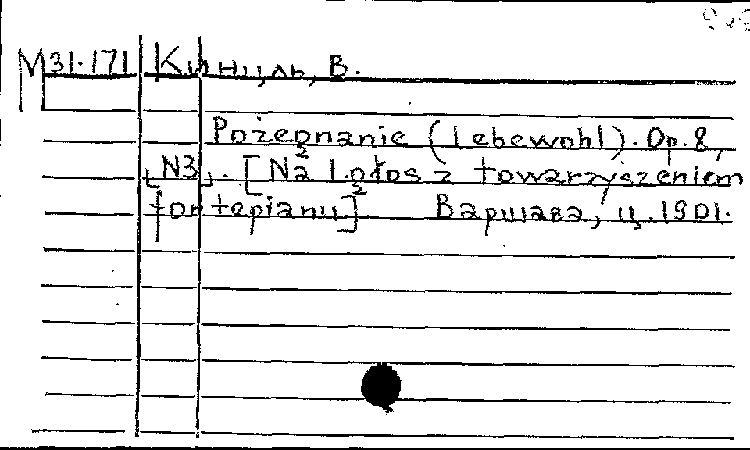 М31.171 Кинцль, В.
Pożegnanie (Lebewohl). Op. 8,
[N3]. [Na 1 głos z towarzyszeniem
fortepianu] Варшава, ц. 1901.